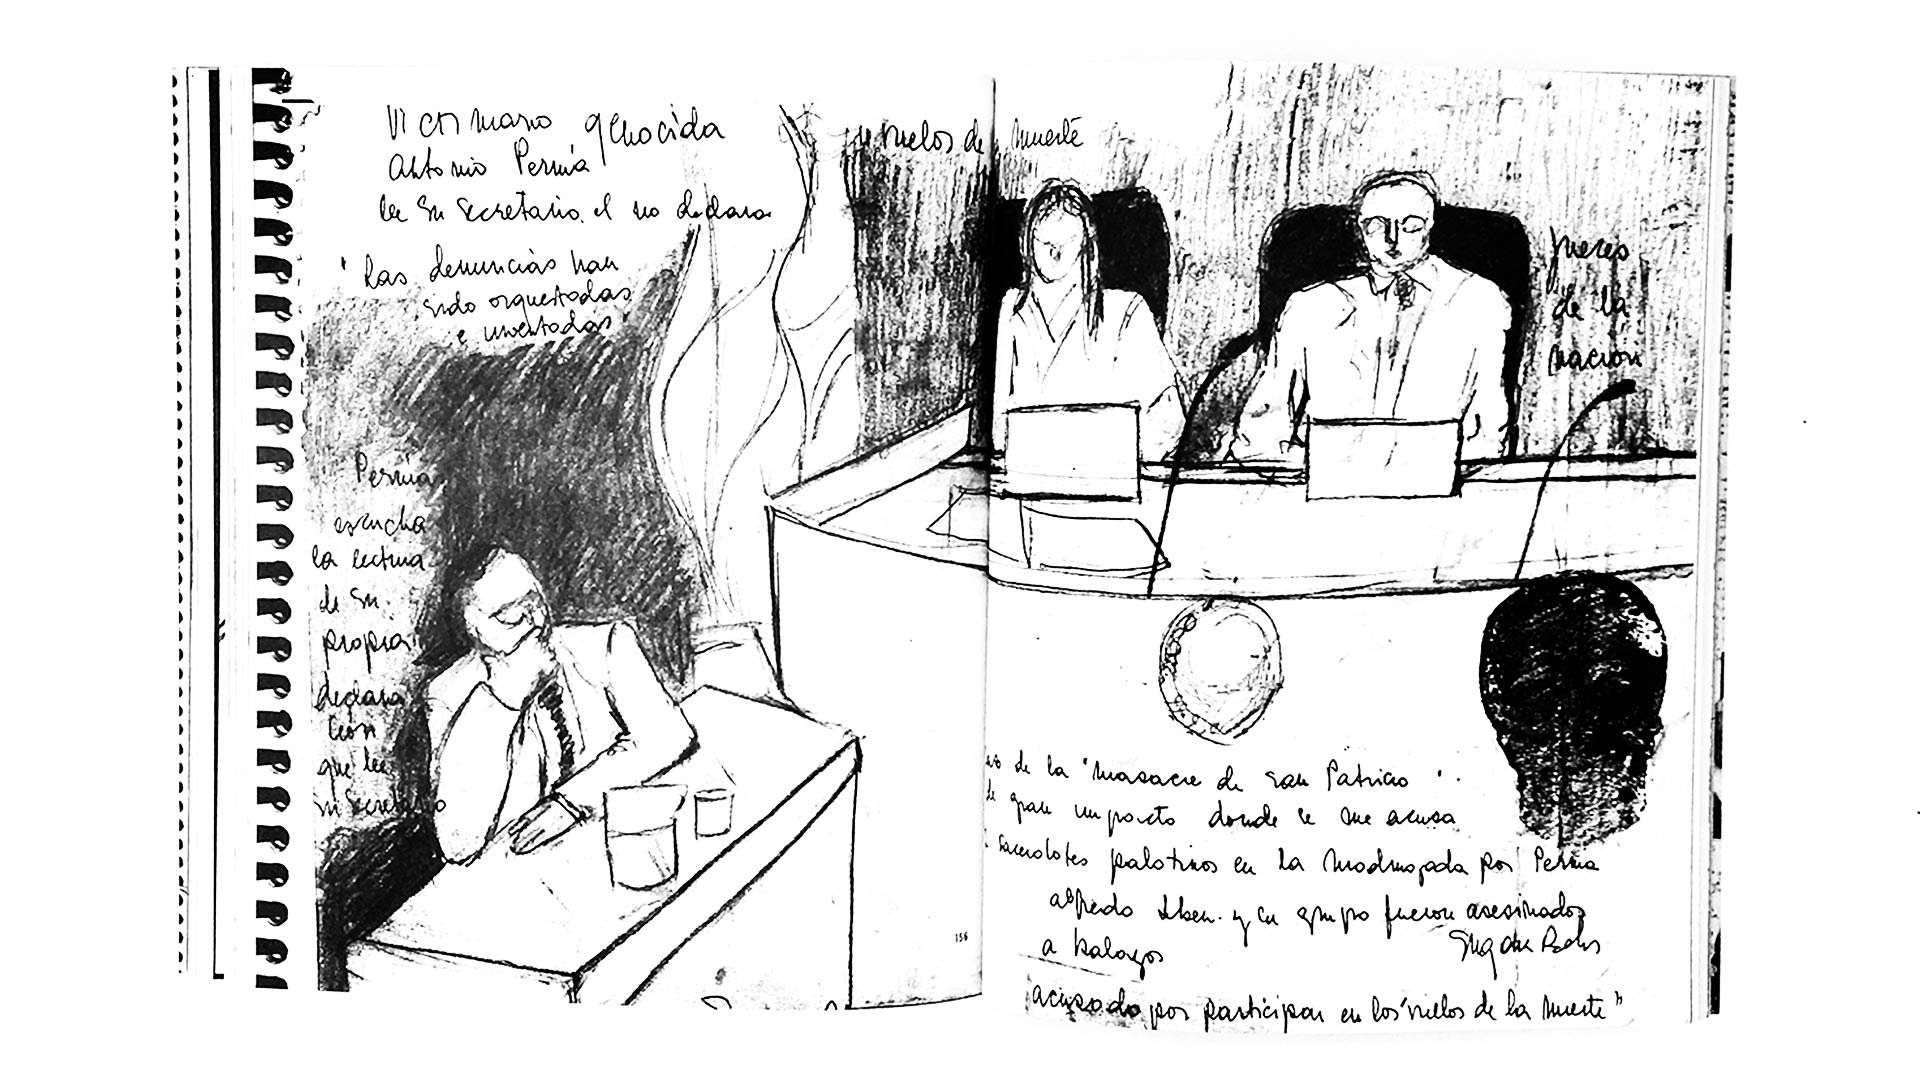 genocida
Antonio Pernía
lee su secretario. el no declara
"Las denuncias han
sido orquestadas
e inventadas
vuelos de muerte
Jueces
de la
nación
Pernía
escucha
la lectura
de su
propia
declara
ción
que lee
su secretario
de la "masacre de San Patricio".
de gran impacto donde se me acusa
sacerdotes palotinos en la madrugada por Pernía
y su grupo fueron asesinados
a balazos
acusado por participar en los "vuelos de la muerte"
156